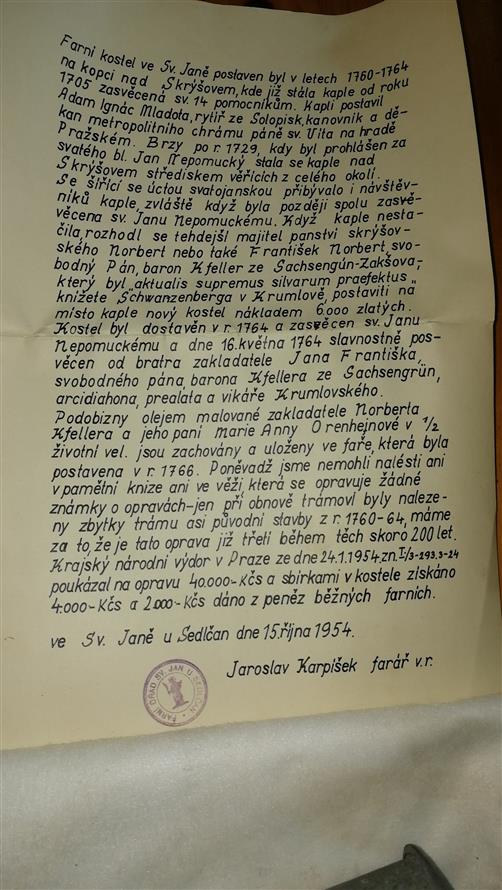 Farní kostel ve Sv. Janě postaven byl v letech 1760-1764
na kopci nad Skrýšovem, kde již stála kaple od roku
1705 zasvěcená sv. 14 pomocníkům. Kapli postavil
Adam Ignác Mladota, rytíř ze Solopisk, kanovník a dě-
kan metropolitního chrámu páně sv. Víta na hradě
Pražském. Brzy po r. 1729, kdy byl prohlášen za
svatého bl. Jan Nepomucký stala se kaple nad
Skrýšovem střediskem věřících z celého okolí.
Se šířící se úctou svatojanskou přibývalo i návštěv-
níků kaple, zvláště když byla později spolu zasvě-
věcena sv. Janu Nepomuckému. Když kaple nesta-
čila, rozhodl se tehdejší majitel panství skrýšov-
ského Norbert nebo také František Norbert, svo-
bodný Pán, baron Kfeller ze Sachsengün-Zakšova,
který byl „aktualis supremus silvarum praefektus"
knížete Schwanzenberga v Krumlově, postaviti na
místo kaple nový kostel nákladem 6.000 zlatých.
Kostel byl dostavěn v r. 1764 a zasvěcen sv. Janu
Nepomuckému a dne 16. května 1764 slavnostně pos-
věcen od bratra zakladatele Jana Františka,
svobodného pána, barona Kfellera ze Sachsengrün,
arcidiahona, prealata a vikáře Krumlovského.
Podobizny olejem malované zakladatele Norberta
Kfellera a jeho paní Marie Anny Orenhejnové v 1/2
životní vel. jsou zachovány a uloženy ve faře, která byla
postavena v r. 1766. Poněvadž jsme nemohli nalésti ani
v pamětní knize ani ve věži, která se opravuje žádné
známky o opravách-jen při obnově trámoví byly naleze-
ny zbytky trámu asi původní stavby z r. 1760-64, máme
za to, že je tato oprava již třetí během těch skoro 200 let.
Krajský národní výdor v Praze ze dne 24.1.1954. zn. I/3-293.3-24
poukázal na opravu 40.000-Kčs a sbírkami v kostele získáno
4.000-Kčs a 2.000-Kčs dáno z peněz běžných farních.
ve Sv. Janě u Sedlčan dne 15. října 1954.
Jaroslav Karpíšek farář v.r.
FARNÍ ÚŘAD SV. JAN U SEDLČAN